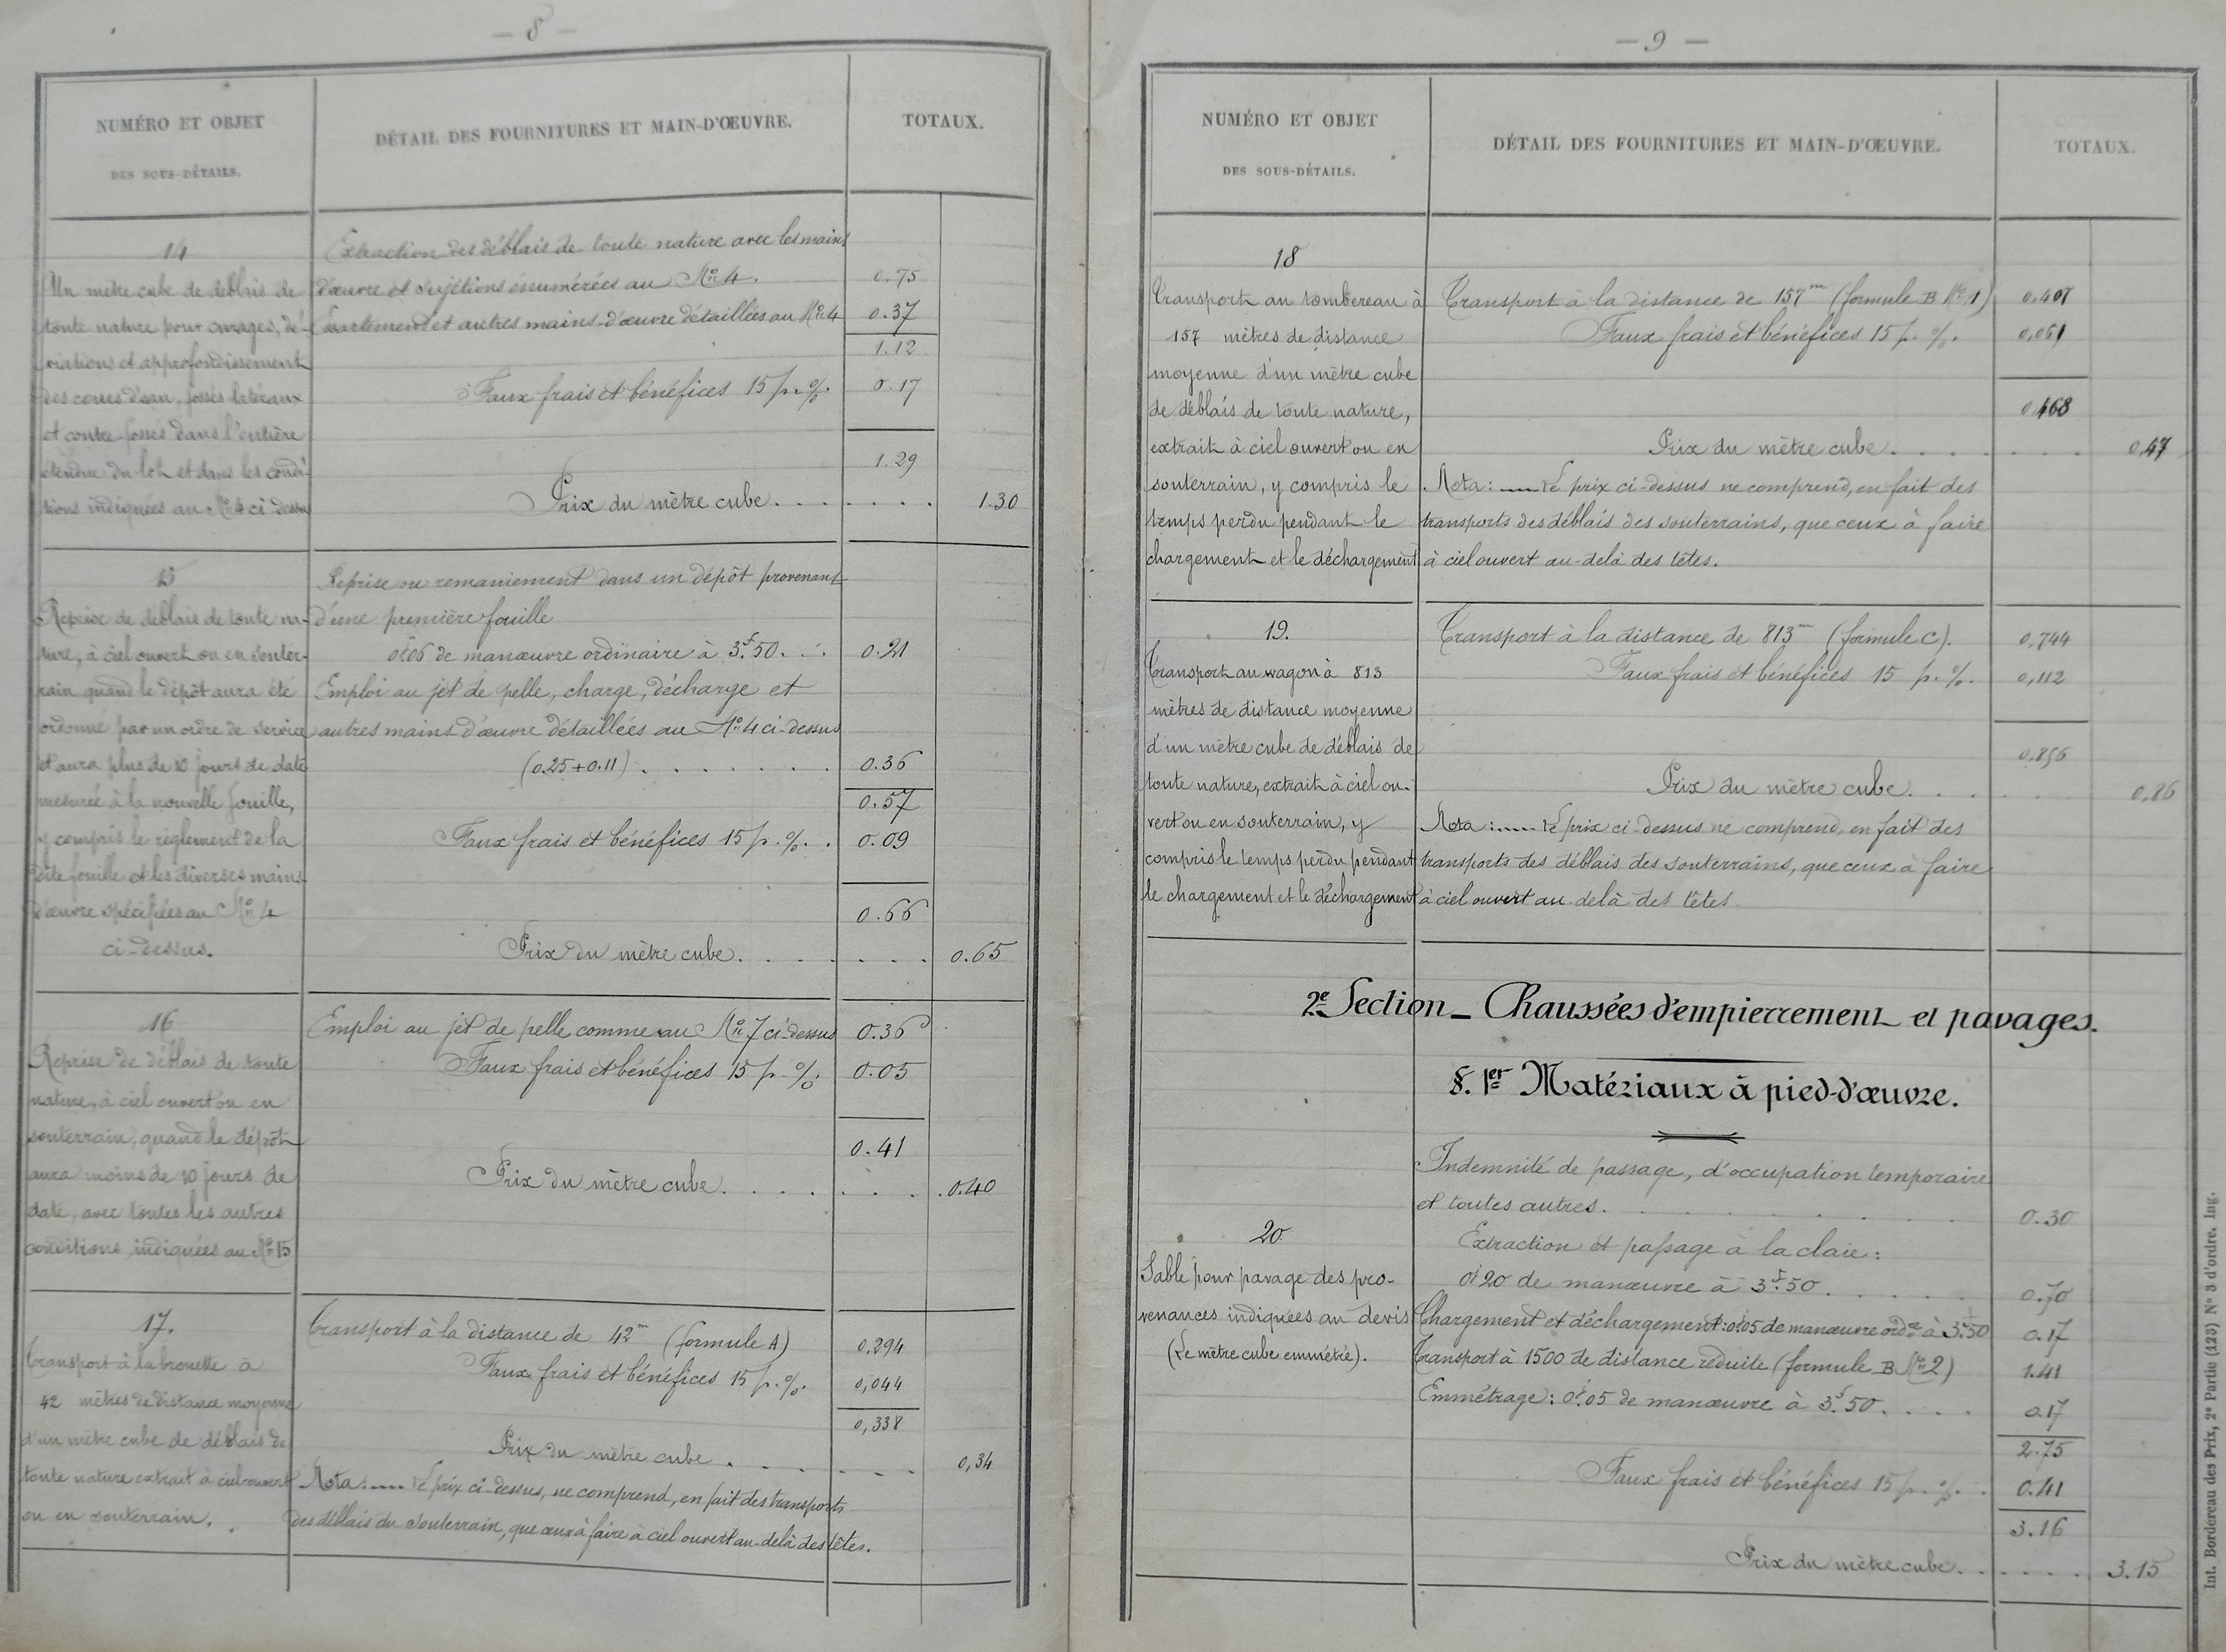 — 8 —
NUMÉRO ET OBJET
DES SOUS-DÉTAILS.
DÉTAIL DES FOURNITURES ET MAIN-D'ŒUVRE.
TOTAUX.
14
Un mètre cube de déblais de
toute nature pour curages, dé-
viations et approfondissement
des cours d'eau, fossés latéraux
et contre-fossés dans l'entière
étendue du lot et dans les condi-
tions indiquées au Nº 4 ci-dessus
Extraction des déblais de toute nature avec les mains
d'œuvre et sujétions énumérées au Nº 4. 0.75
Écartement et autres mains-d'œuvre détaillées au Nº 4 0.37
1.12
Faux frais et bénéfices 15 p. % 0.17
1.29
Prix du mètre cube . . . . . . . 1.30
15
Reprise de déblais de toute na-
ture, à ciel ouvert ou en souter-
rain quand le dépôt aura été
ordonné par un ordre de service
et aura plus de 10 jours de date
mesurée à la nouvelle fouille,
y compris le règlement de la
dite fouille et les diverses mains
d'œuvre spécifiées au Nº 4
ci-dessus.
Reprise ou remaniement dans un dépôt provenant
d'une première fouille
0j06 de manœuvre ordinaire à 3f.50. . . 0.21
Emploi au jet de pelle, charge, décharge et
autres mains d'œuvre détaillées au Nº 4 ci-dessus
(0.25+0.11) . . . . . . . 0.36
0.57
Faux frais et bénéfices 15 p. %. . 0.09
0.66
Prix du mètre cube. . . . . . . 0.65
16
Reprise de déblais de toute
nature, à ciel ouvert ou en
souterrain, quand le dépôt
aura moins de 10 jours de
date, avec toutes les autres
conditions indiquées au Nº 15
Emploi au jet de pelle comme au Nº 7 ci-dessus 0.36
Faux frais et bénéfices 15 p. % 0.05
0.41
Prix du mètre cube. . . . . . . . 0.40
17.
Transport à la brouette à
42 mètres de distance moyenne
d'un mètre cube de déblais de
toute nature extrait à ciel ouvert
ou en souterrain.
Transport à la distance de 42m (formule A) 0.294
Faux frais et bénéfices 15 p. %. 0,044
0,338
Prix du mètre cube . . . . . . . 0,34
Nota : Le prix ci-dessus, ne comprend, en fait des transports
des déblais du souterrain, que ceux à faire à ciel ouvert au-delà des têtes.
— 9 —
NUMÉRO ET OBJET
DES SOUS-DÉTAILS.
DÉTAIL DES FOURNITURES ET MAIN-D'ŒUVRE.
TOTAUX.
18
Transport au tombereau à
157 mètres de distance
moyenne d'un mètre cube
de déblais de toute nature,
extrait à ciel ouvert ou en
souterrain, y compris le
temps perdu pendant le
chargement et le déchargement
Transport à la distance de 157m (formule B Nº 1) 0.407
Faux frais et bénéfices 15 p. %. 0,061
0,468
Prix du mètre cube. . . . . . . 0,47
Nota : Le prix ci-dessus ne comprend, en fait des
transports des déblais des souterrains, que ceux à faire
à ciel ouvert au-delà des têtes.
19.
Transport au wagon à 813
mètres de distance moyenne
d'un mètre cube de déblais de
toute nature, extrait à ciel ou-
vert ou en souterrain, y
compris le temps perdu pendant
le chargement et le déchargement
Transport à la distance de 813m (formule C). 0,744
Faux frais et bénéfices 15 p. %. 0,112
0,856
Prix du mètre cube. . . . . 0,86
Nota : Le prix ci-dessus ne comprend, en fait des
transports des déblais des souterrains, que ceux à faire
à ciel ouvert au delà des têtes.
2e Section — Chaussées d'empierrement et pavages.
§. 1er Matériaux à pied-d'œuvre.
20
Sable pour pavage des pro-
venances indiquées au devis
(Le mètre cube emmétré).
Indemnité de passage, d'occupation temporaire
et toutes autres. . . . . . . . 0.30
Extraction et passage à la claie :
0j20 de manœuvre à 3f.50. . . . . . 0.70
Chargement et déchargement: 0j05 de manœuvre ordre à 3f.50 0.17
Transport à 1500 de distance réduite (formule B Nº 2) 1.41
Emmétrage : 0j.05 de manœuvre à 3f.50. . . . 0.17
2.75
Faux frais et bénéfices 15 p. %. . 0.41
3.16
Prix du mètre cube. . . . . . 3.15
Int. Bordereau des Prix, 2e Partie (123) N° 3 d'ordre. Ing.